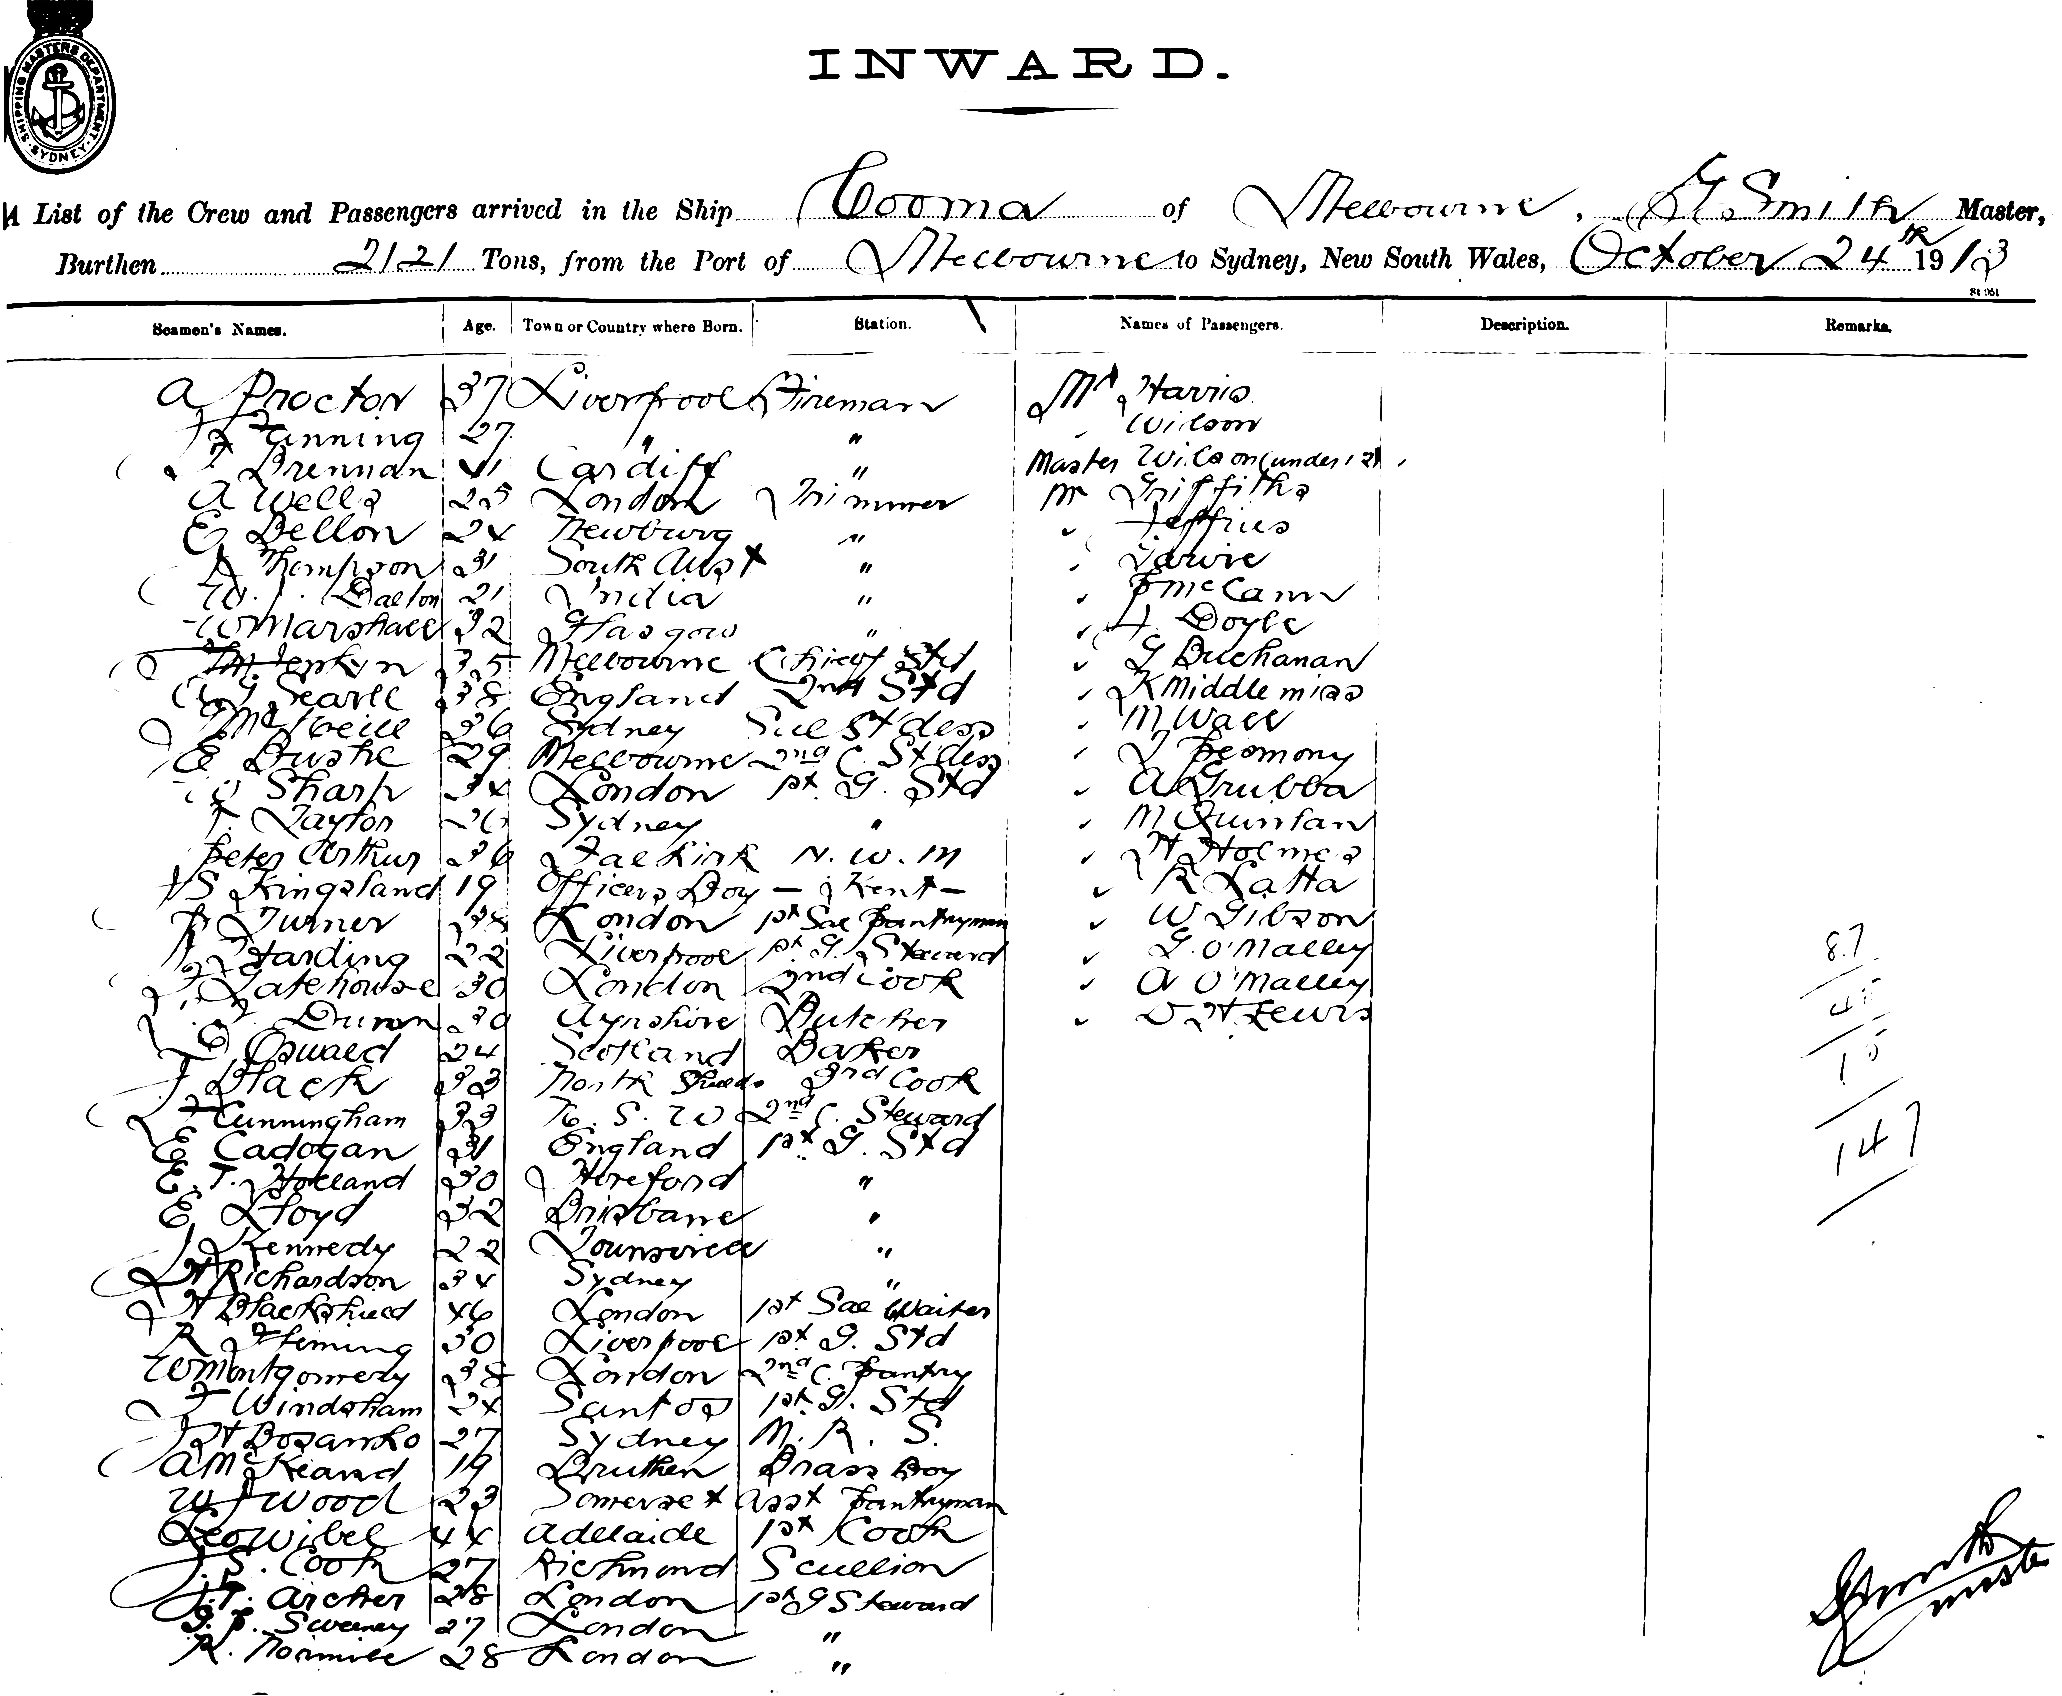 SHIPPING MASTERS DEPARTMENT. SYDNEY.
INWARD.
A List of the Crew and Passengers arrived in the Ship Cooma of Melbourne, G Smith Master,
Burthen 2121 Tons, from the Port of Melbourne to Sydney, New South Wales, October 24th 1913
Seamen's Names. Age. Town or Country where Born. Station. Names of Passengers. Description. Remarks.
A Proctor 37 Liverpool Fireman Mr Harris
Fanning 27 " " Wilson
Brennan 41 Cardiff " Master Wilson (under 12)
A Wells 25 London Trimmer Mr Griffiths
E Dellon 24 Newburg " Jeffries
Thompson 31 South Aust "
W. J. Dalton 21 India " P McCann
W Marshall 32 Glasgow " Doyle
35 Melbourne Chief Std G Buchanan
Searle 38 England 2nd Std K Middlemiss
McNeill 36 Sydney Sal Stdess M Wall
E Burke 29 Melbourne 2nd C. Stdess
Sharp 34 London 1st. G. Std A Grubba
Taylor 26 Sydney " M Quinlan
Peter Arthur 36 Falkirk N. W. M H Holmes
S Kingsland 19 Officers Boy — Kent — R Latta
Turner London 1st Sal Pantryman W Gibson
Harding 22 Liverpool 1st G. Steward G. O'Malley
Gatehouse 30 London 2nd Cook A O'Malley
Dunn 30 Ayrshire Butcher D H Lewis
Oswald 24 Scotland Baker
J Black 33 North Shields 3rd Cook
Cunningham 33 N. S. W 2nd C. Steward
E Cadogan 31 England 1st G. Std
E. T. Holland 30 Hereford "
E Lloyd 32 Brisbane "
J Kennedy 22 Townsville "
H Richardson 34 Sydney "
H Blackshield 46 London 1st Sal Waiter
R Fleming 30 Liverpool 1st G. Std
W Montgomery 38 London 2nd C. Pantry
F Windsham 24 Santos 1st G. Std
H Bosanko 27 Sydney M. R. S.
A McKeand 19 Bruthen Brass Boy
W J Wood 23 Somerset Asst Pantryman
Leo Wibel 44 Adelaide 1st Cook
J. S. Cook 27 Richmond Scullion
J. F. Archer 28 London 1st G Steward
G. P. Sweeney 27 London "
R. Normile 28 London "
87
15
147